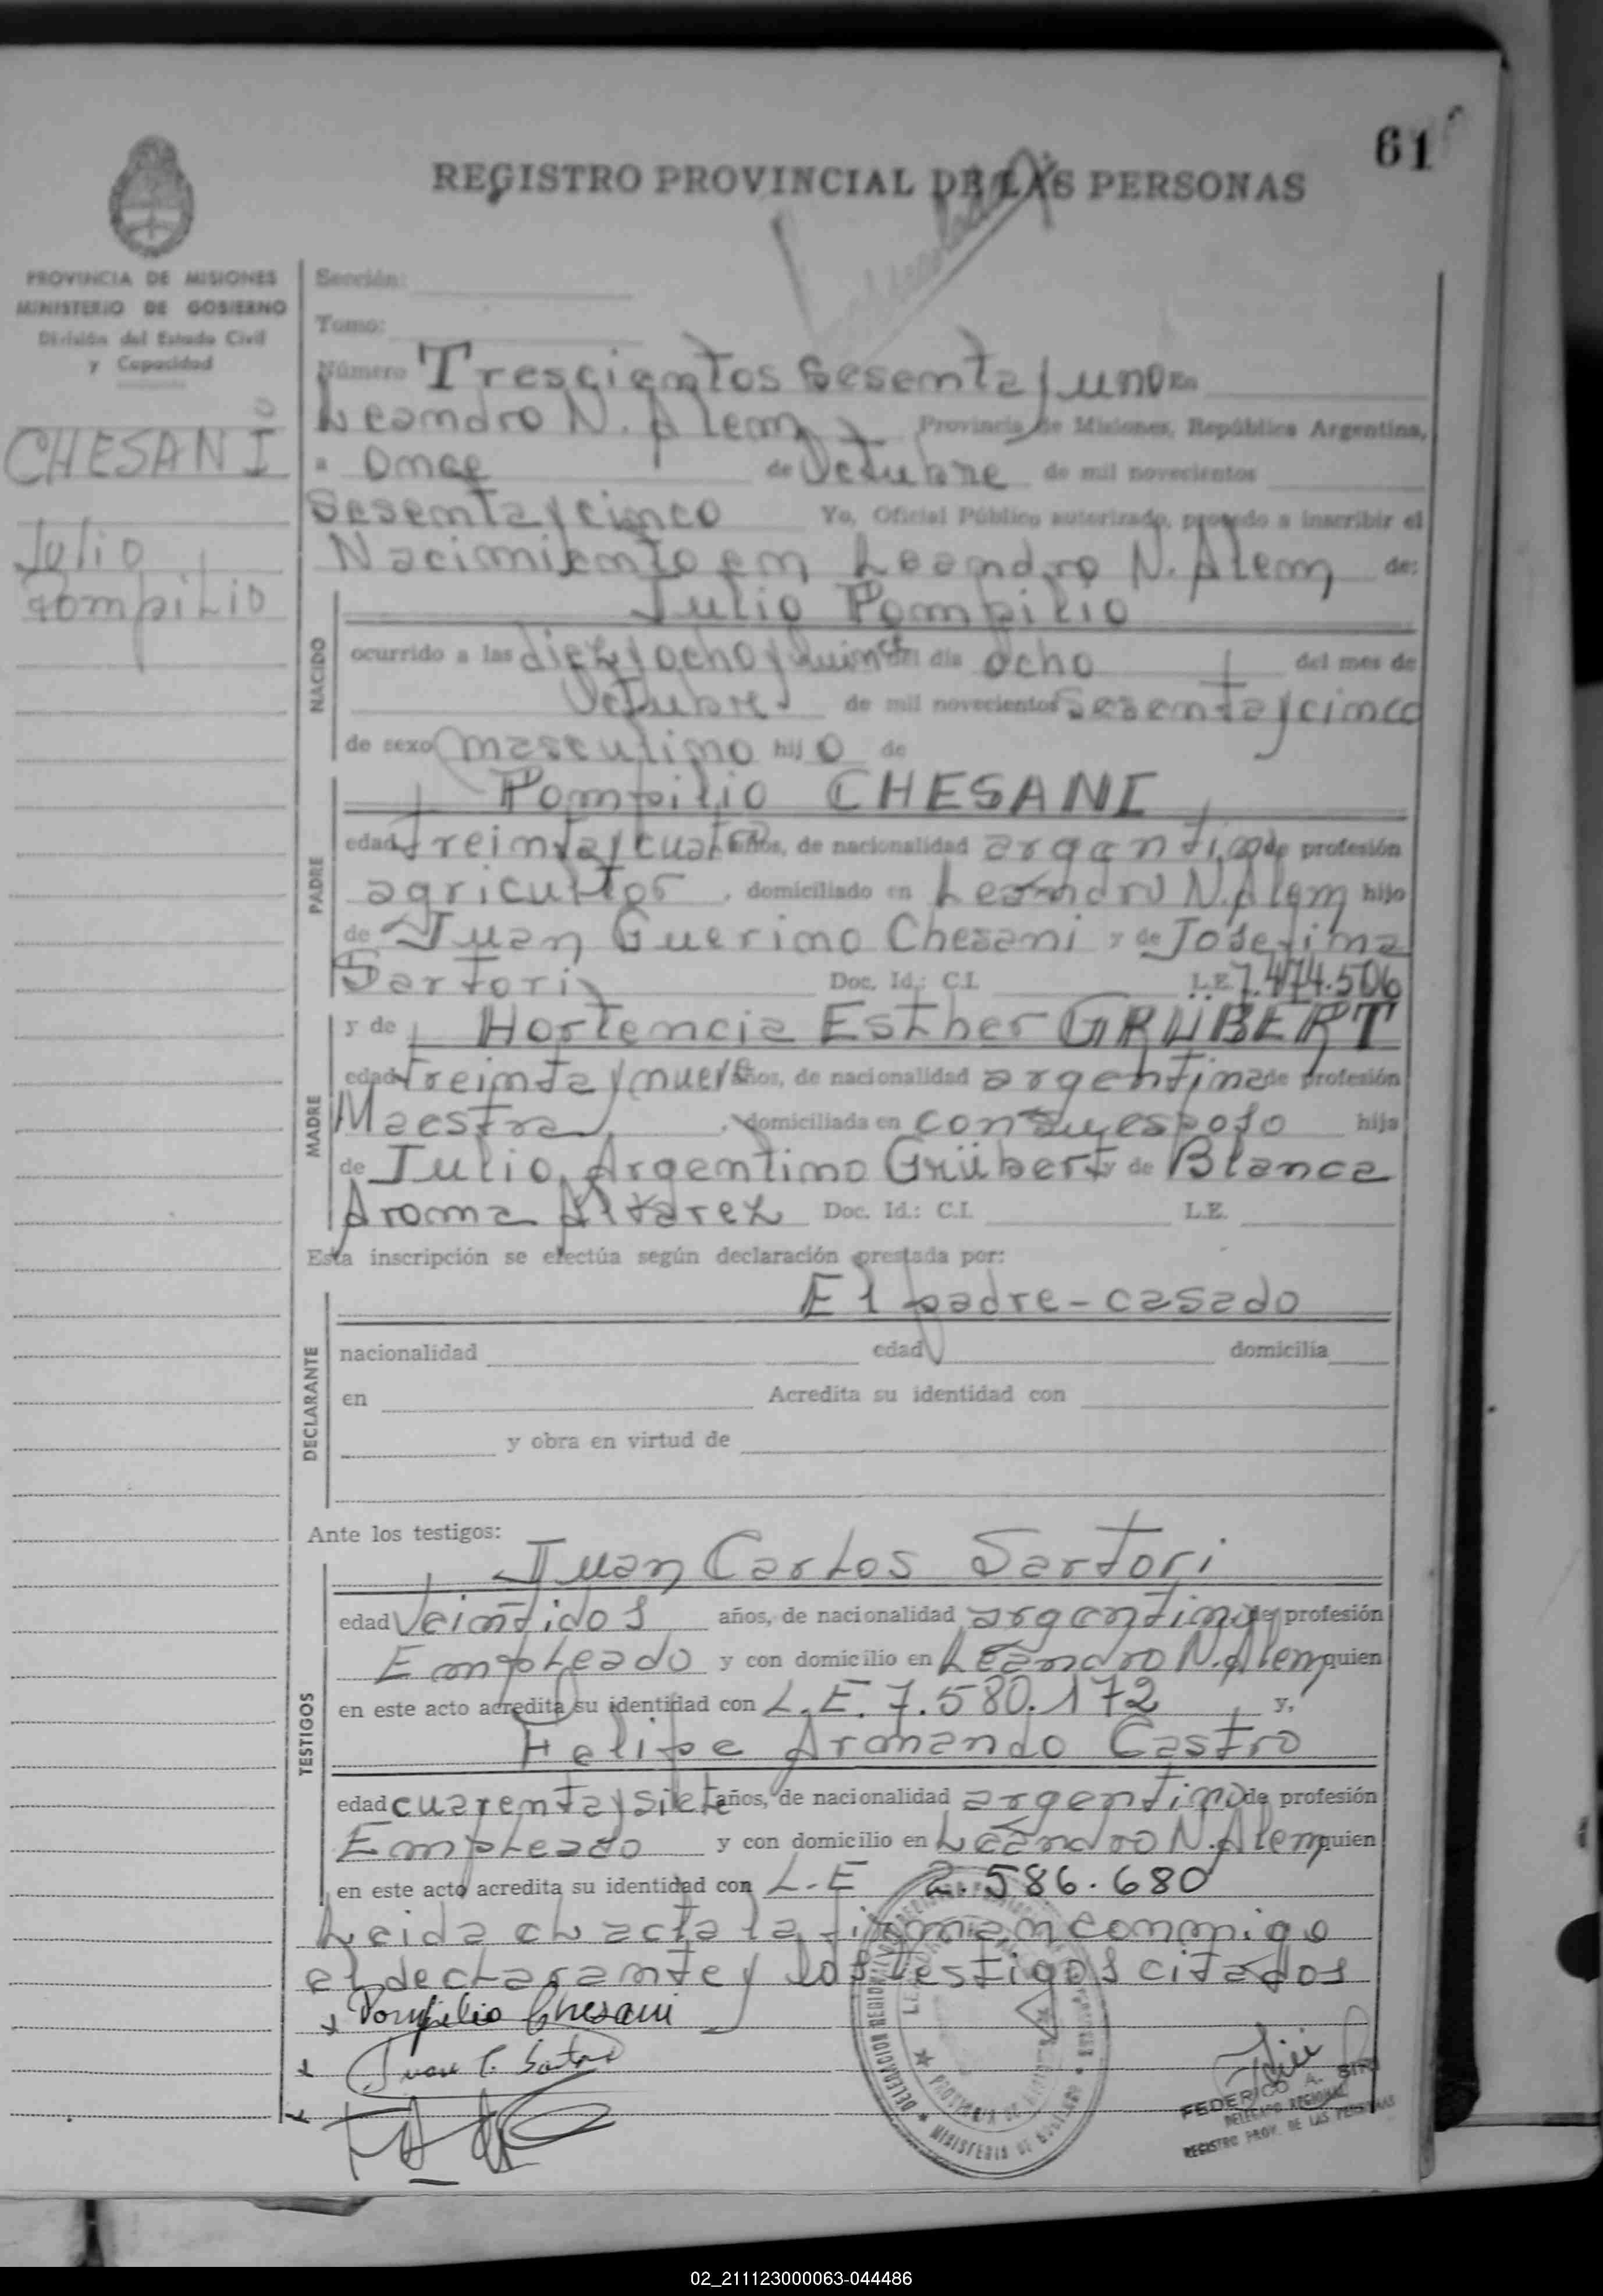 61
REGISTRO PROVINCIAL DE LAS PERSONAS
PROVINCIA DE MISIONES
MINISTERIO DE GOBIERNO
División del Estado Civil
y Capacidad
CHESANI
Julio
Pompilio
Sección:
Tomo:
Número Trescientos sesenta y uno En
Leandro N. Alem Provincia de Misiones, República Argentina,
a Once de Octubre de mil novecientos
Sesenta y cinco Yo, Oficial Público autorizado, procedo a inscribir el
Nacimiento en Leandro N. Alem de:
NACIDO
Julio Pompilio
ocurrido a las diez y ocho y quince del día ocho del mes de
Octubre de mil novecientos sesenta y cinco
de sexo masculino hijo de
PADRE
Pompilio CHESANI
edad treinta y cuatro años, de nacionalidad argentino de profesión
agricultor, domiciliado en Leandro N. Alem hijo
de Juan Guerino Chesani y de Josefina
Sartori Doc. Id.: C.I. L.E. 7.474.506
MADRE
y de Hortencia Esther GRÜBERT
edad treinta y nueve años, de nacionalidad argentina de profesión
Maestra, domiciliada en con su esposo hija
de Julio Argentino Grübert y de Blanca
Aroma Alvarez Doc. Id.: C.I. L.E.
Esta inscripción se efectúa según declaración prestada por:
DECLARANTE
El padre - casado
nacionalidad edad domicilia
en Acredita su identidad con
y obra en virtud de
Ante los testigos:
TESTIGOS
Juan Carlos Sartori
edad Veintidos años, de nacionalidad argentino de profesión
Empleado y con domicilio en Leandro N. Alem quien
en este acto acredita su identidad con L.E. 7.580.172 y,
Felipe Armando Castro
edad cuarenta y siete años, de nacionalidad argentino de profesión
Empleado y con domicilio en Leandro N. Alem quien
en este acto acredita su identidad con L.E 2.586.680
Leida el acta la firman conmigo
el declarante y los testigos citados
Pompilio Chesani
Juan C. Sartori
DELEGACION REGIONAL
MINISTERIO DE GOBIERNO
FEDERICO A.
DELEGADO REGIONAL
REGISTRO PROV. DE LAS PERSONAS
02_211123000063-044486